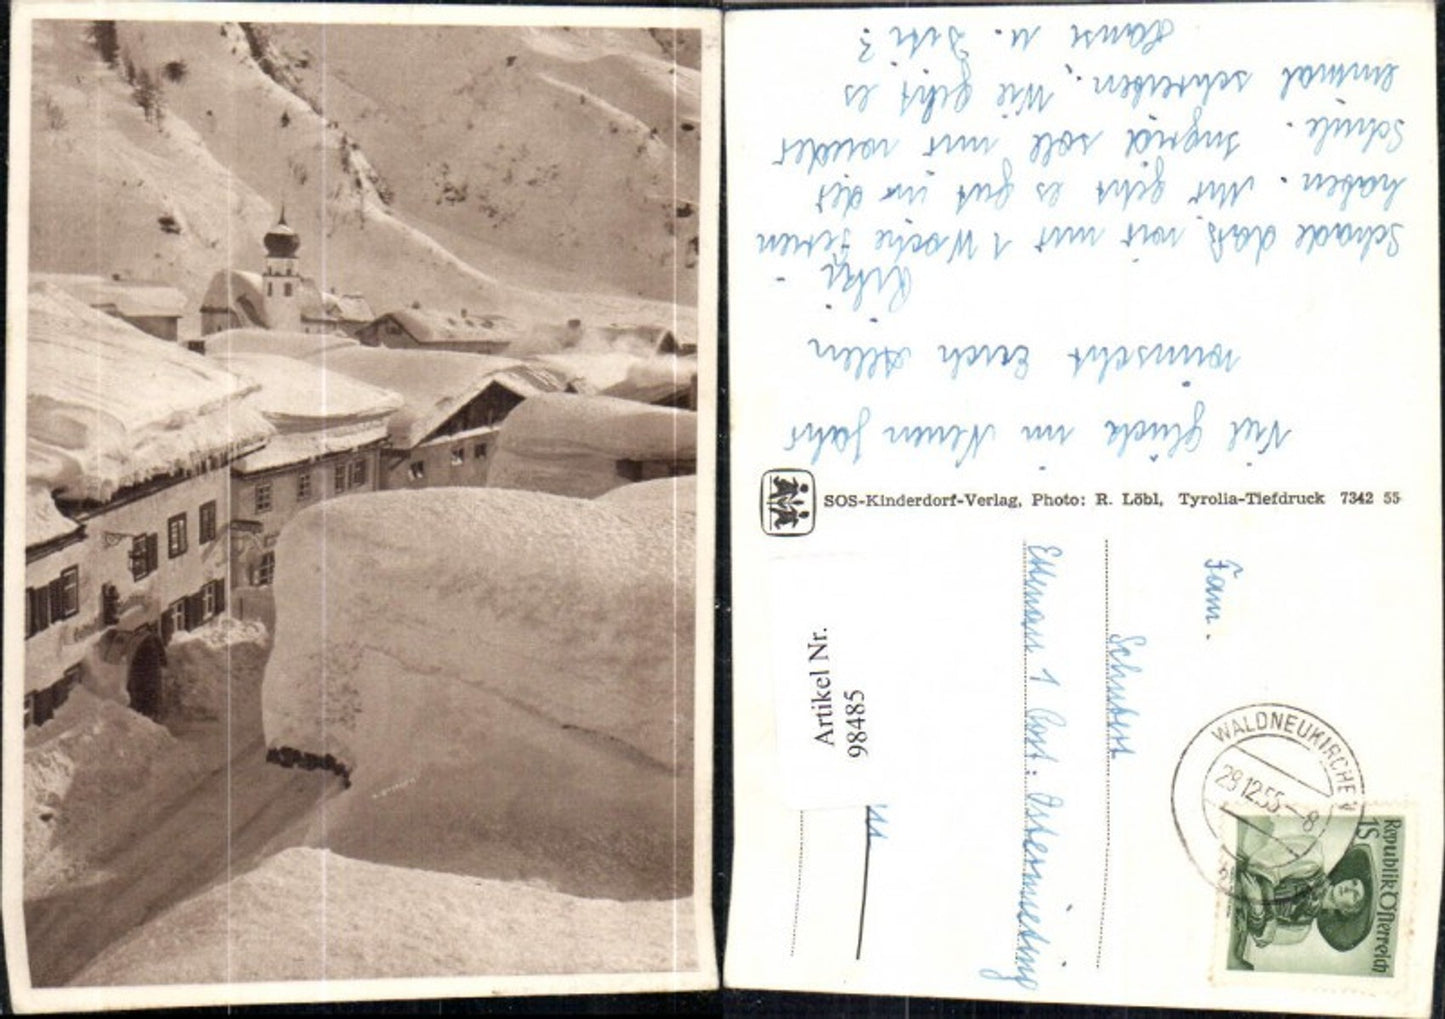 Viel Glück im Neuen Jahr
wünscht Erich Allen
Schade daß wir nur 1 Woche Ferien
haben. Mir geht es gut in der
Schule. Ingrid soll mir wieder
einmal schreiben. Wie geht es
Hansi u.
SOS-Kinderdorf-Verlag, Photo: R. Löbl, Tyrolia-Tiefdruck 7342 55
Fam.
Schubert
1 Post: Ostermiething
Artikel Nr.
98485
WALDNEUKIRCHEN
29.12.55.-8
Republik Österreich
1S